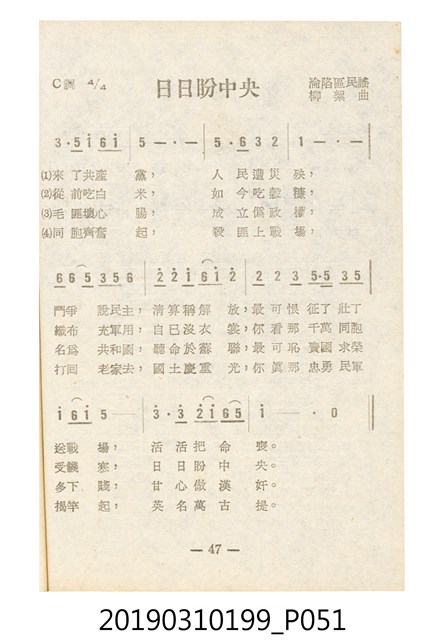 C調 4/4
日日盼中央
淪陷區民謠
柳絮曲
3·5 i 6 i 5 — · — 5·6 3 2 1 — · —
⑴來了共產黨，人民遭災殃，
⑵從前吃白米，如今吃穀糠，
⑶毛匪壞心腸，成立僞政權，
⑷同胞齊奮起，殺匪上戰場，
6 6 5 3 5 6 2 2 i 6 i 2 2 2 3 5·5 3 5
鬥爭說民主，淸算稱解放，最可恨征了壯丁
織布充軍用，自已沒衣裳，你看那千萬同胞
名爲共和國，聽命於蘇聯，最可恥賣國求榮
打囘老家去，國土慶重光，你眞那忠勇民軍
i 6 i 5 — 3·3 2 i 6 5 i — · 0
送戰場，活活把命喪。
受饑寒，日日盼中央。
多下賤，甘心做漢奸。
揭竿起，英名萬古提。
— 47 —
20190310199_P051